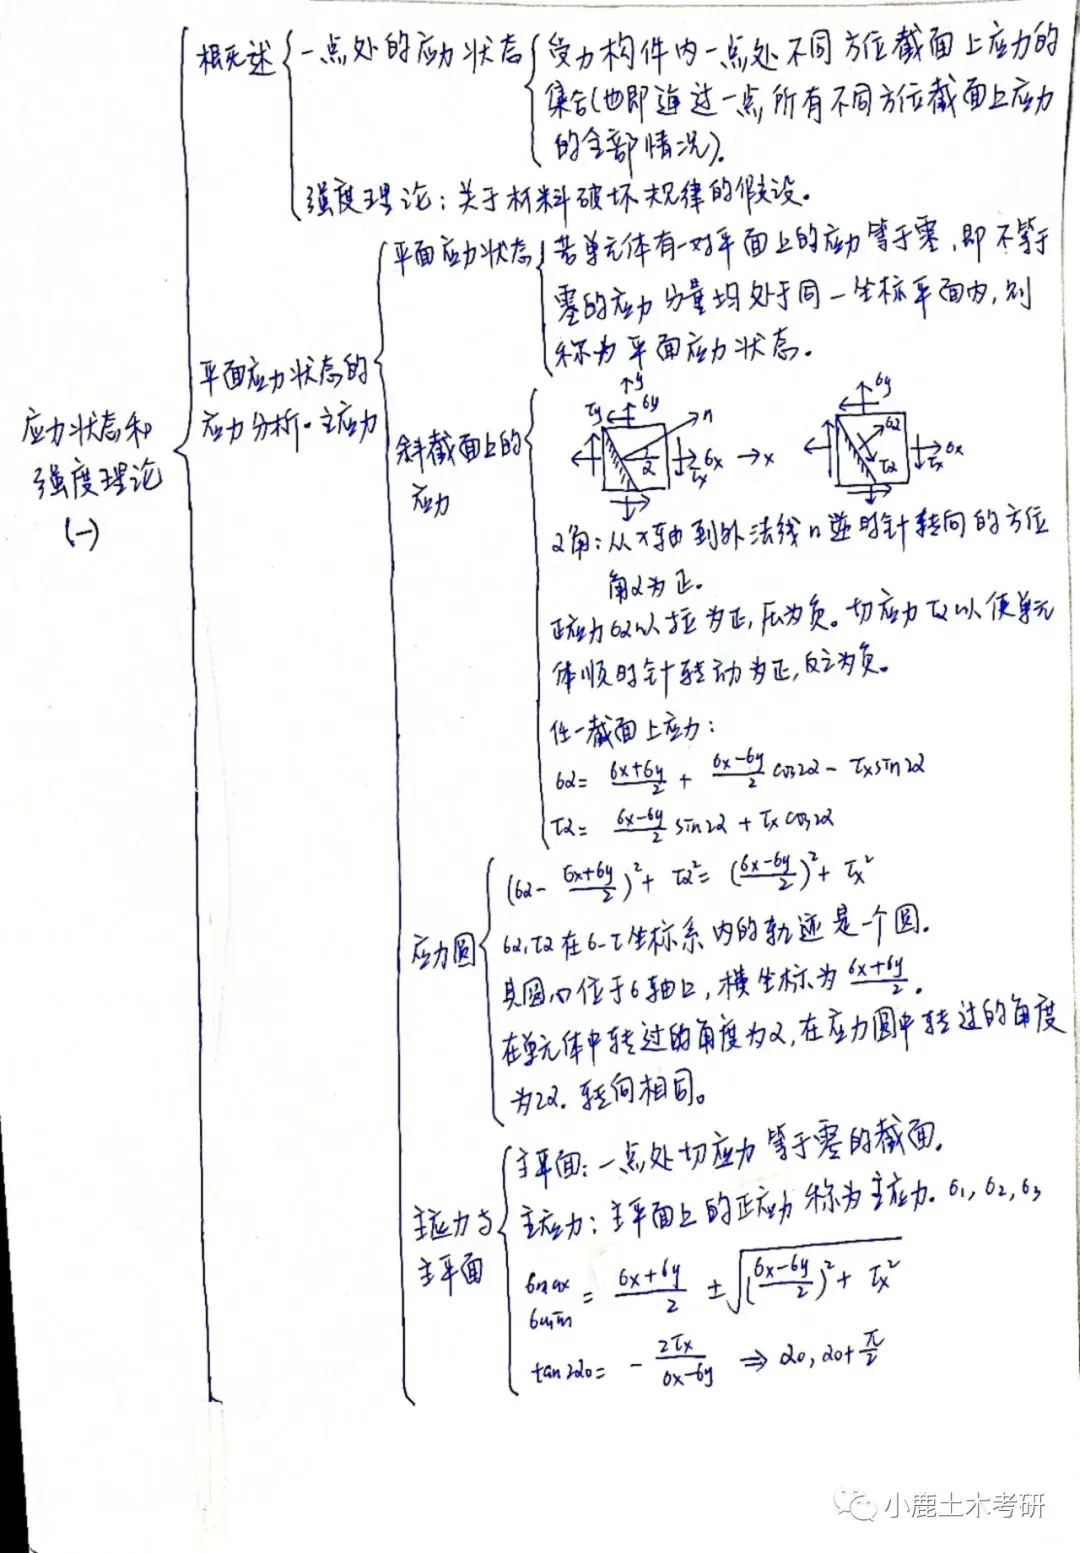 概述
一点处的应力状态
受力构件内一点处不同方位截面上应力的
集合(也即通过一点所有不同方位截面上应力
的全部情况).
强度理论:关于材料破坏规律的假设.
平面应力状态
若单元体有一对平面上的应力等于零,即不等于
零的应力分量均处于同一坐标平面内,则
称为平面应力状态.
平面应力状态的
应力分析·主应力
应力状态和
强度理论
(一)
斜截面上的
应力
y
τy σy n
α σx τx x
σy
σα τα σx τx
α角:从x轴到外法线n逆时针转向的方位
角α为正.
正应力σα以拉为正,压为负。切应力τα以使单元
体顺时针转动为正,反之为负。
任一截面上应力:
σα= (σx+σy)/2 + (σx-σy)/2 cos2α - τxsin2α
τα= (σx-σy)/2 sin2α + τxcos2α
应力圆
(σα- (σx+σy)/2)²+ τα²= ((σx-σy)/2)²+ τx²
σα,τα在σ-τ坐标系内的轨迹是一个圆.
其圆心位于σ轴上,横坐标为(σx+σy)/2.
在单元体中转过的角度为α,在应力圆中转过的角度
为2α.转向相同。
主应力与
主平面
主平面:一点处切应力等于零的截面.
主应力:主平面上的正应力称为主应力.σ1,σ2,σ3
σmax
σmin = (σx+σy)/2 ±√(((σx-σy)/2)²+ τx²)
tan2α0= - 2τx/(σx-σy) ⇒ α0,α0+π/2
小鹿土木考研